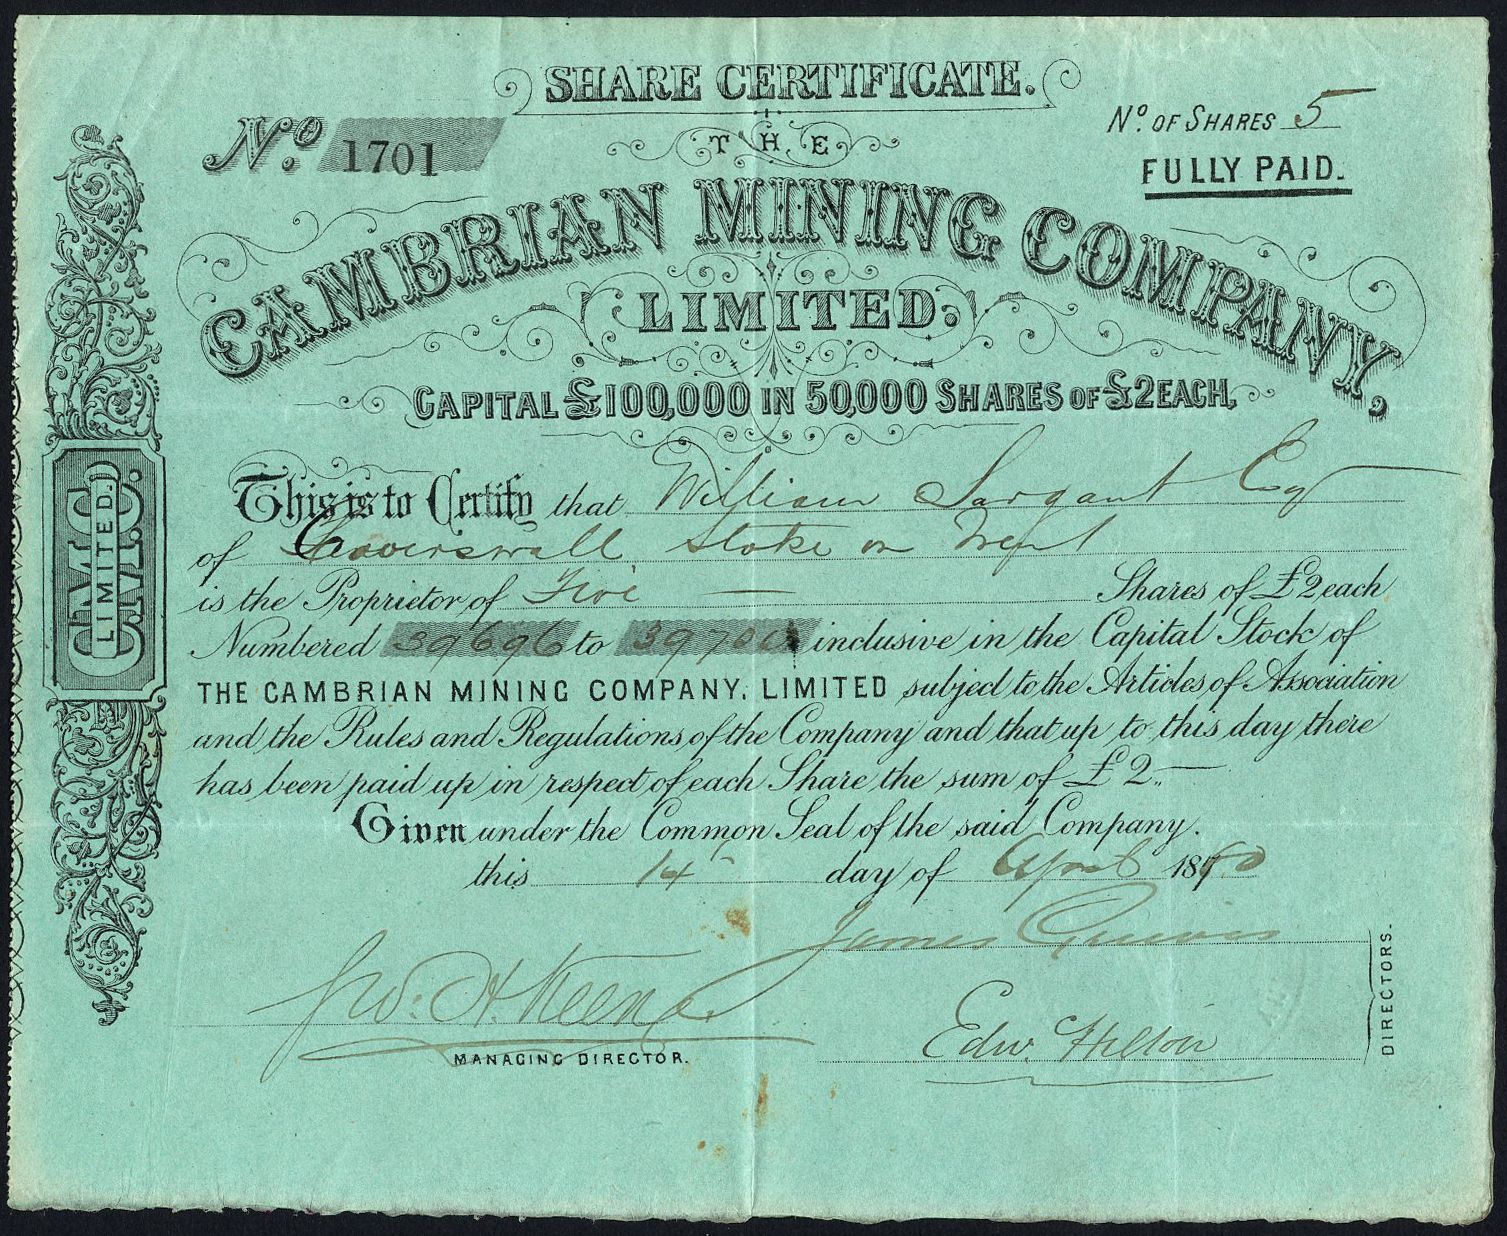 SHARE CERTIFICATE.
No. 1701
No. OF SHARES 5
FULLY PAID.
THE
CAMBRIAN MINING COMPANY,
LIMITED.
CAPITAL £100,000 IN 50,000 SHARES OF £2 EACH.
C.M.C.
LIMITED.
This is to Certify that William Sargant Esq
of Caverswall Stoke on Trent
is the Proprietor of Five — Shares of £2 each
Numbered 39696 to 39700 inclusive in the Capital Stock of
THE CAMBRIAN MINING COMPANY, LIMITED subject to the Articles of Association
and the Rules and Regulations of the Company and that up to this day there
has been paid up in respect of each Share the sum of £2.—
Given under the Common Seal of the said Company.
this 14 day of April 1880
James
H. Keene
MANAGING DIRECTOR.
Edw. Hilton
DIRECTORS.